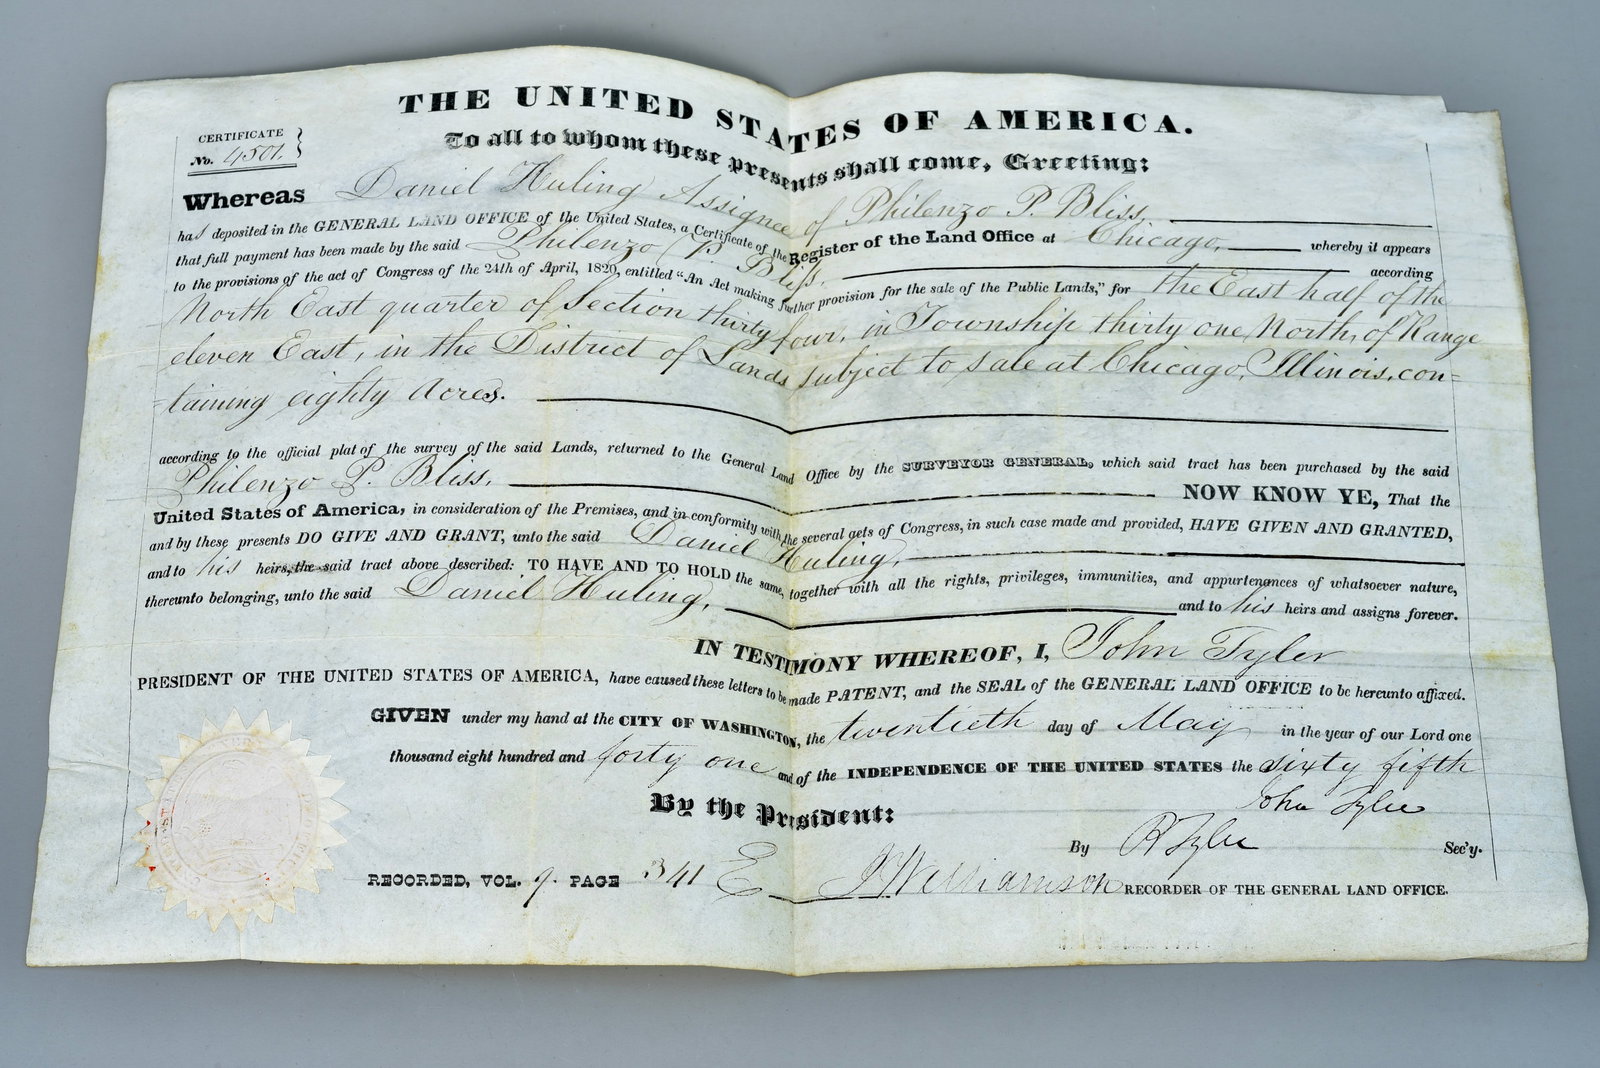 THE UNITED STATES OF AMERICA.
CERTIFICATE
No. 4501.
To all to whom these presents shall come, Greeting:
Whereas Daniel Huling Assignee of Philenzo P. Bliss,
has deposited in the GENERAL LAND OFFICE of the United States, a Certificate of the Register of the Land Office at Chicago, whereby it appears
that full payment has been made by the said Philenzo P. Bliss, according
to the provisions of the act of Congress of the 24th of April, 1820, entitled "An Act making further provision for the sale of the Public Lands," for the East half of the
North East quarter of Section thirty four, in Township thirty one, North, of Range
eleven East, in the District of Lands subject to sale at Chicago, Illinois, con=
=taining eighty Acres.
according to the official plat of the survey of the said Lands, returned to the General Land Office by the SURVEYOR GENERAL, which said tract has been purchased by the said
Philenzo P. Bliss,
NOW KNOW YE, That the
United States of America, in consideration of the Premises, and in conformity with the several acts of Congress, in such case made and provided, HAVE GIVEN AND GRANTED,
and by these presents DO GIVE AND GRANT, unto the said Daniel Huling,
and to his heirs, the said tract above described: TO HAVE AND TO HOLD the same, together with all the rights, privileges, immunities, and appurtenances of whatsoever nature,
thereunto belonging, unto the said Daniel Huling, and to his heirs and assigns forever.
IN TESTIMONY WHEREOF, I, John Tyler
PRESIDENT OF THE UNITED STATES OF AMERICA, have caused these letters to be made PATENT, and the SEAL of the GENERAL LAND OFFICE to be hereunto affixed.
GIVEN under my hand at the CITY OF WASHINGTON, the twentieth day of May in the year of our Lord one
thousand eight hundred and forty one and of the INDEPENDENCE OF THE UNITED STATES the sixty fifth
By the President: John Tyler
By R Tyler Sec'y.
RECORDED, VOL. 9. PAGE 341 E J Williamson RECORDER OF THE GENERAL LAND OFFICE.